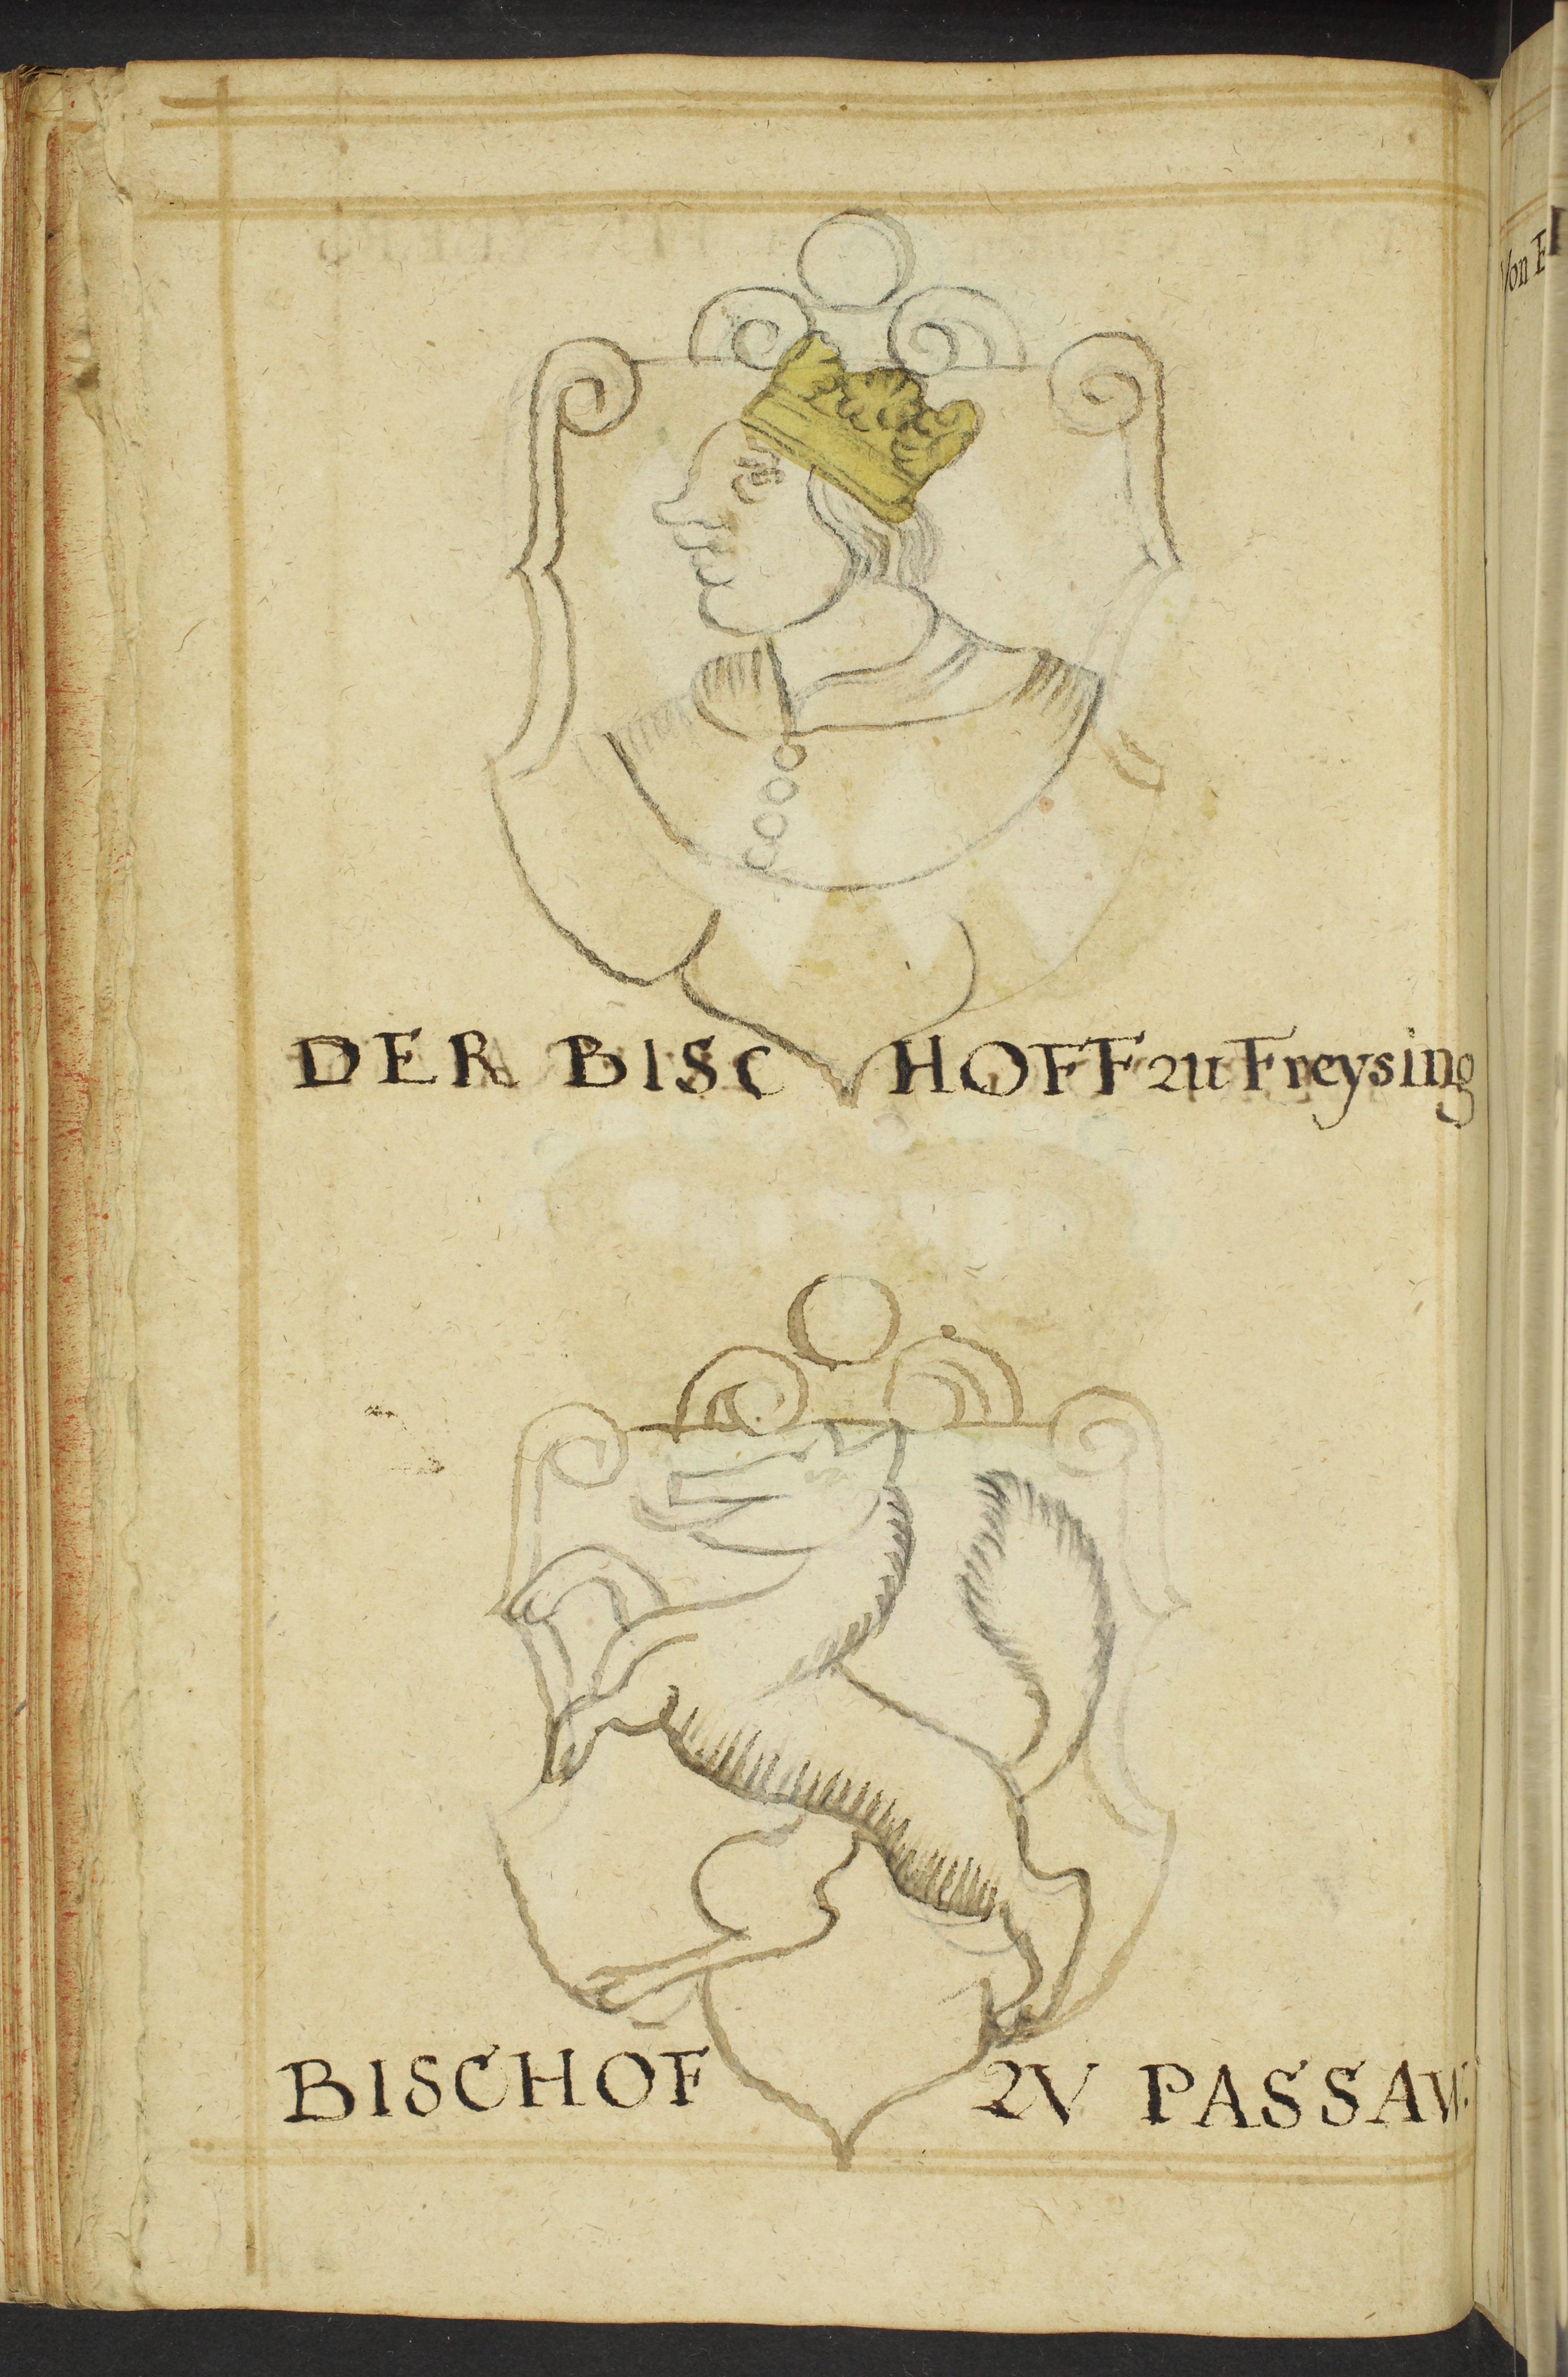 DER BISCHOFF zu Freysing
BISCHOF ZV PASSAW
Von